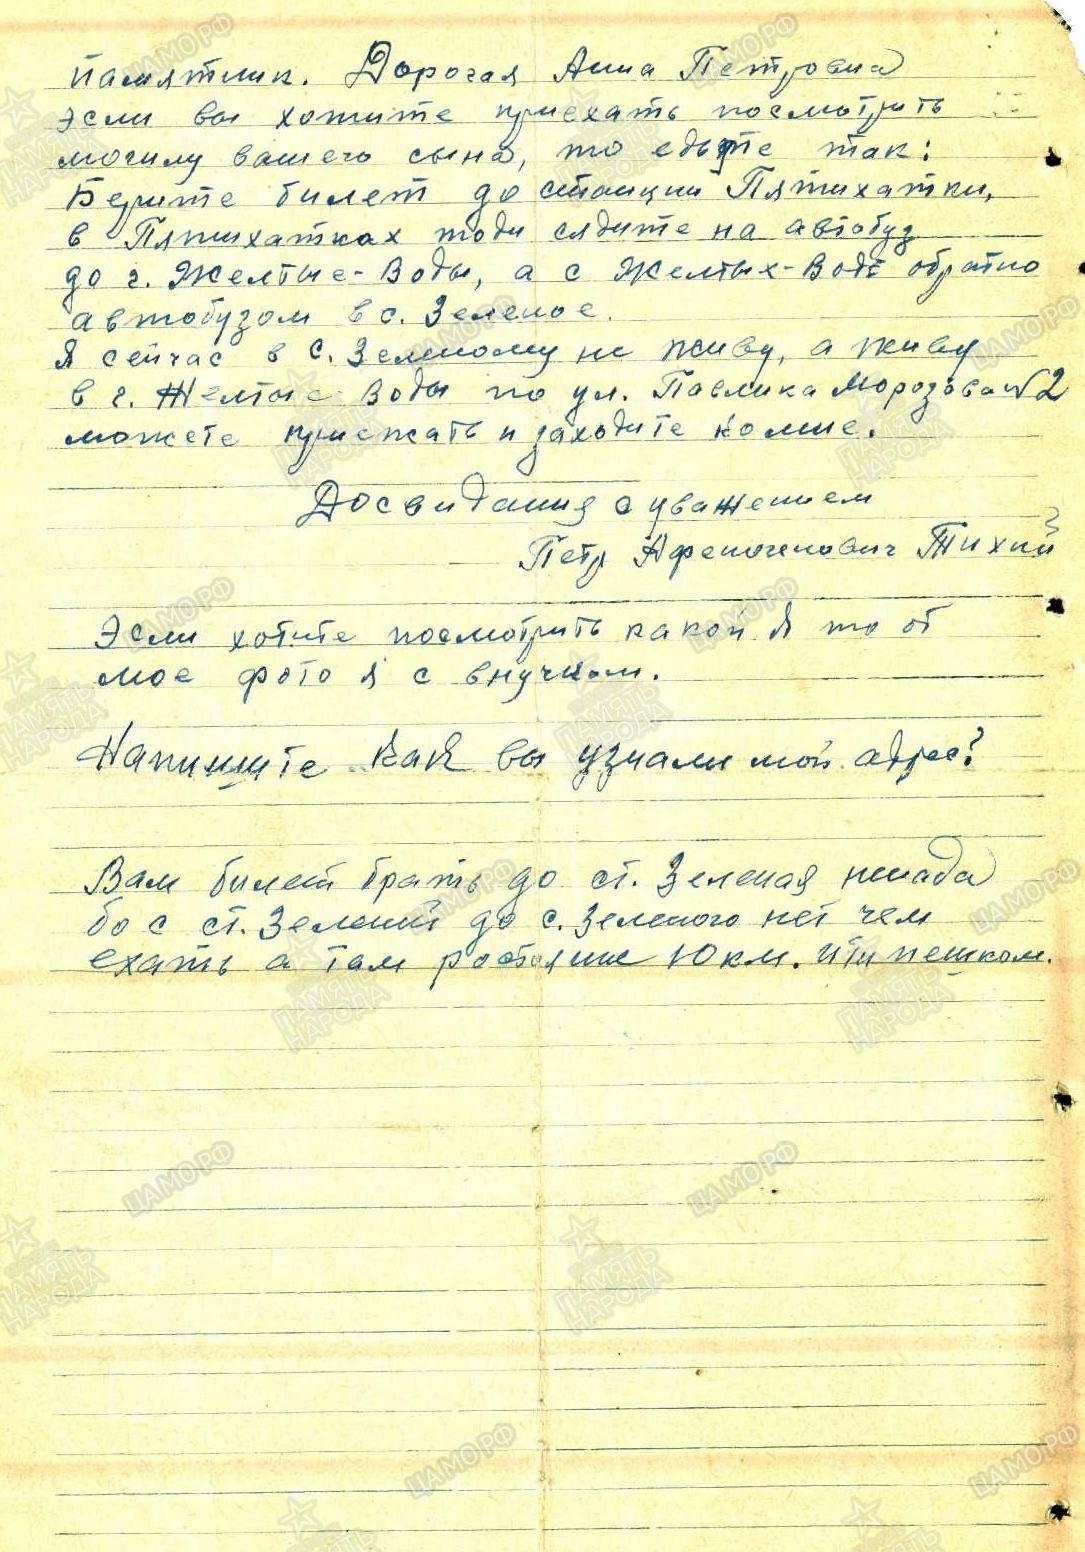 памятник. Дорогая Анна Петровна
эсли вы хотите приехать посмотрить
могилу вашего сына, то едьте так:
Берите билет до станции Пятихатки,
в Пятихатках тоди сядите на автобуз
до г. Желтые-Воды, а с Желтых-Водь обратно
автобузом в с. Зеленое.
Я сейчас в с. Зеленому не живу, а живу
в г. Желтые Воды по ул. Павлика Морозова №2
можете приежать и заходите комне.
Досвидания с уважением
Петр Тихий
Эсли хотите посмотрить какой я то от
мое фото я с внучком.
Напишите как вы узнали мой адрес?
Вам билет брать до ст. Зеленая ненада
бо с ст. Зелений до с. Зеленого нет чем
ехать а там ростояние 10 км. ити пешком.
ЦАМО РФ
ПАМЯТЬ НАРОДА